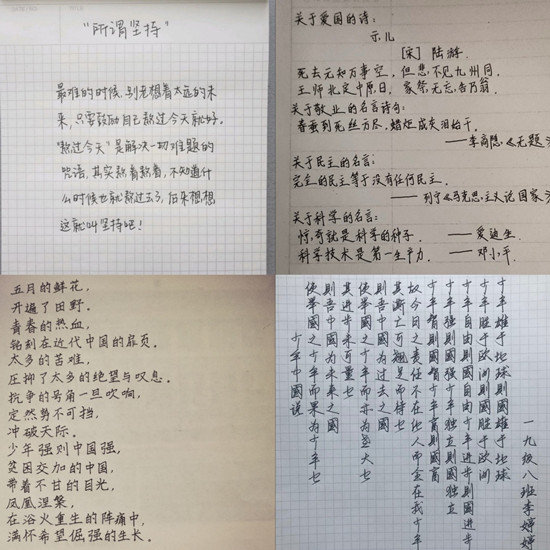 "所谓坚持"
最难的时候,别老想着太远的未
来,只要鼓励自己熬过今天就好。
"熬过今天"是解决一切难题的
咒语,其实熬着熬着,不知道什
么时候也就熬过去了,后来想想
这就叫坚持吧!
关于爱国的诗:
示儿
[宋] 陆游.
死去无知万事空,但悲不见九州同.
王师北定中原日,家祭无忘告乃翁.
关于敬业的名言诗句:
春蚕到死丝方尽,蜡炬成灰泪始干.
——李商隐《无题
关于民主的名言:
完全的民主等于没有任何民主.
——列宁《马克思主义论国家
关于科学的名言:
惊奇就是科学的种子. ——爱迪生
科学技术是第一生产力. ——邓小平
五月的鲜花,
开遍了田野。
青春的热血,
钻到在近代中国的扉页。
太多的苦难,
压抑了太多的绝望与叹息。
抗争的号角一旦吹响,
定然势不可挡,
冲破天际。
少年强则中国强,
贫困交加的中国,
带着不甘的目光,
凤凰涅槃,
在浴火重生的阵痛中,
满怀希望倔强的生长。
少年中國说
使举國之少年而果为少年也
則吾中國为未来之國
其进步未可量也
使举國之少年而亦为老大也
則吾中國为过去之國
其澌亡可翘足而待也
故今日之责任不在他人而全在我少年
少年智則國智少年富則國富
少年強則國強少年独立則國独立
少年自由則國自由少年进步則國进步
少年胜于欧洲則國胜于欧洲
少年雄于地球則國雄于地球
一九级八班李婷婷